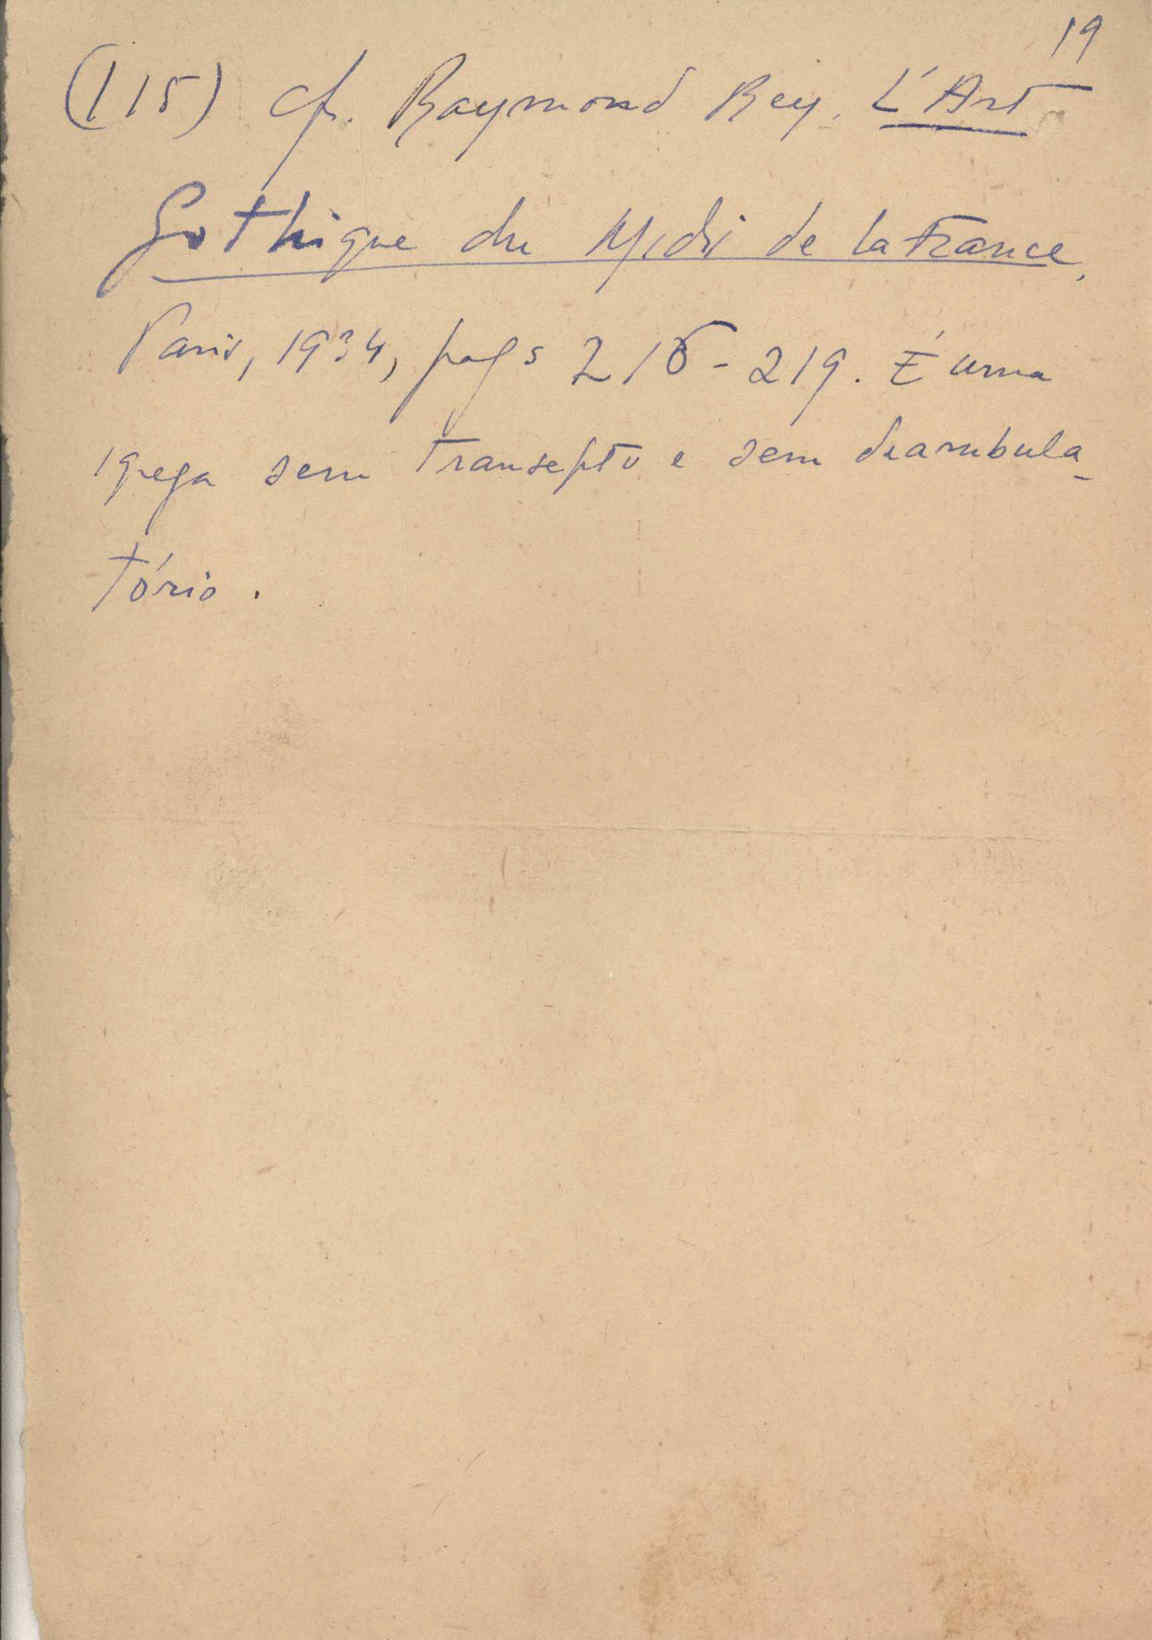 19
(115) cf. Raymond Rey, L'Art
Gothique du Midi de la France,
Paris, 1934, pags 216-219. É uma
igreja sem transepto e sem deambula-
tório.